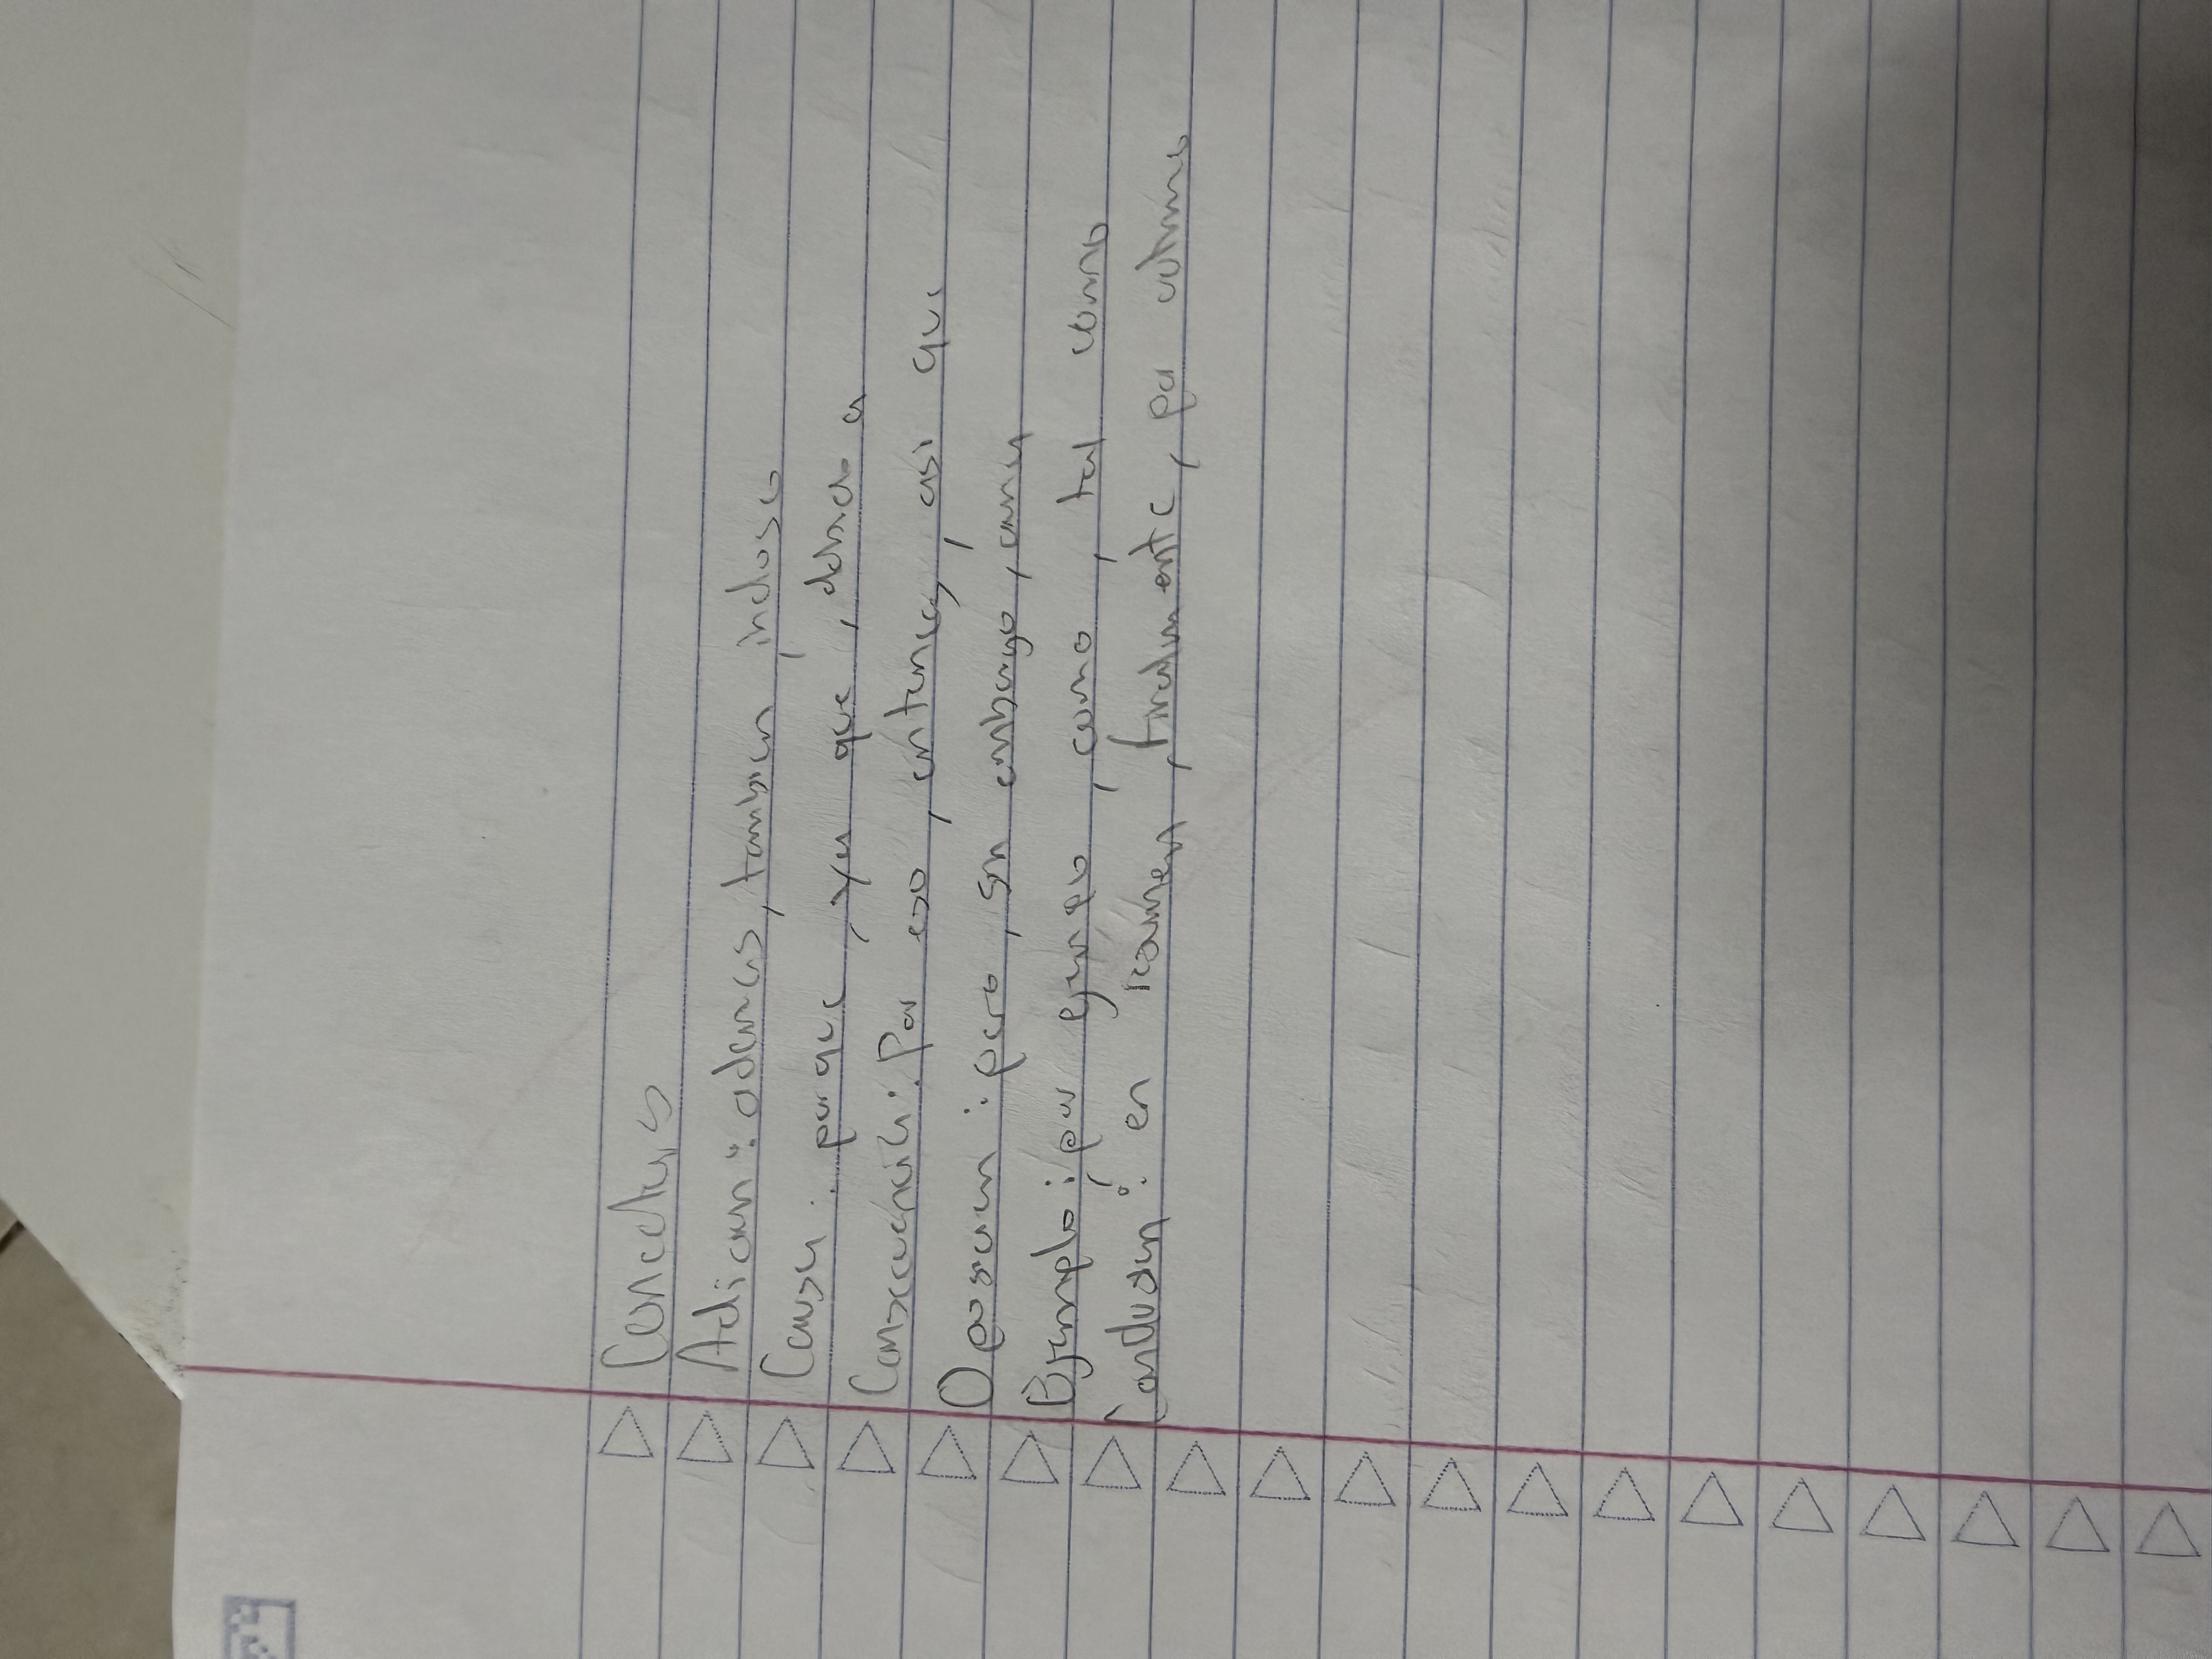 Conectors
Adicion: ademas, tambien, incluso
Causa: porque, ya que, debido a
Consecuencia: Por eso, entonces, asi que
Oposicion: pero, sin embargo, aunq
Ejemplo: por ejemplo, como, tal como
Conclusion: en resumen, finalmente, por ultimo